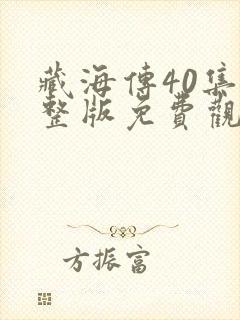 藏海傳40集
整版免費觀
方振富